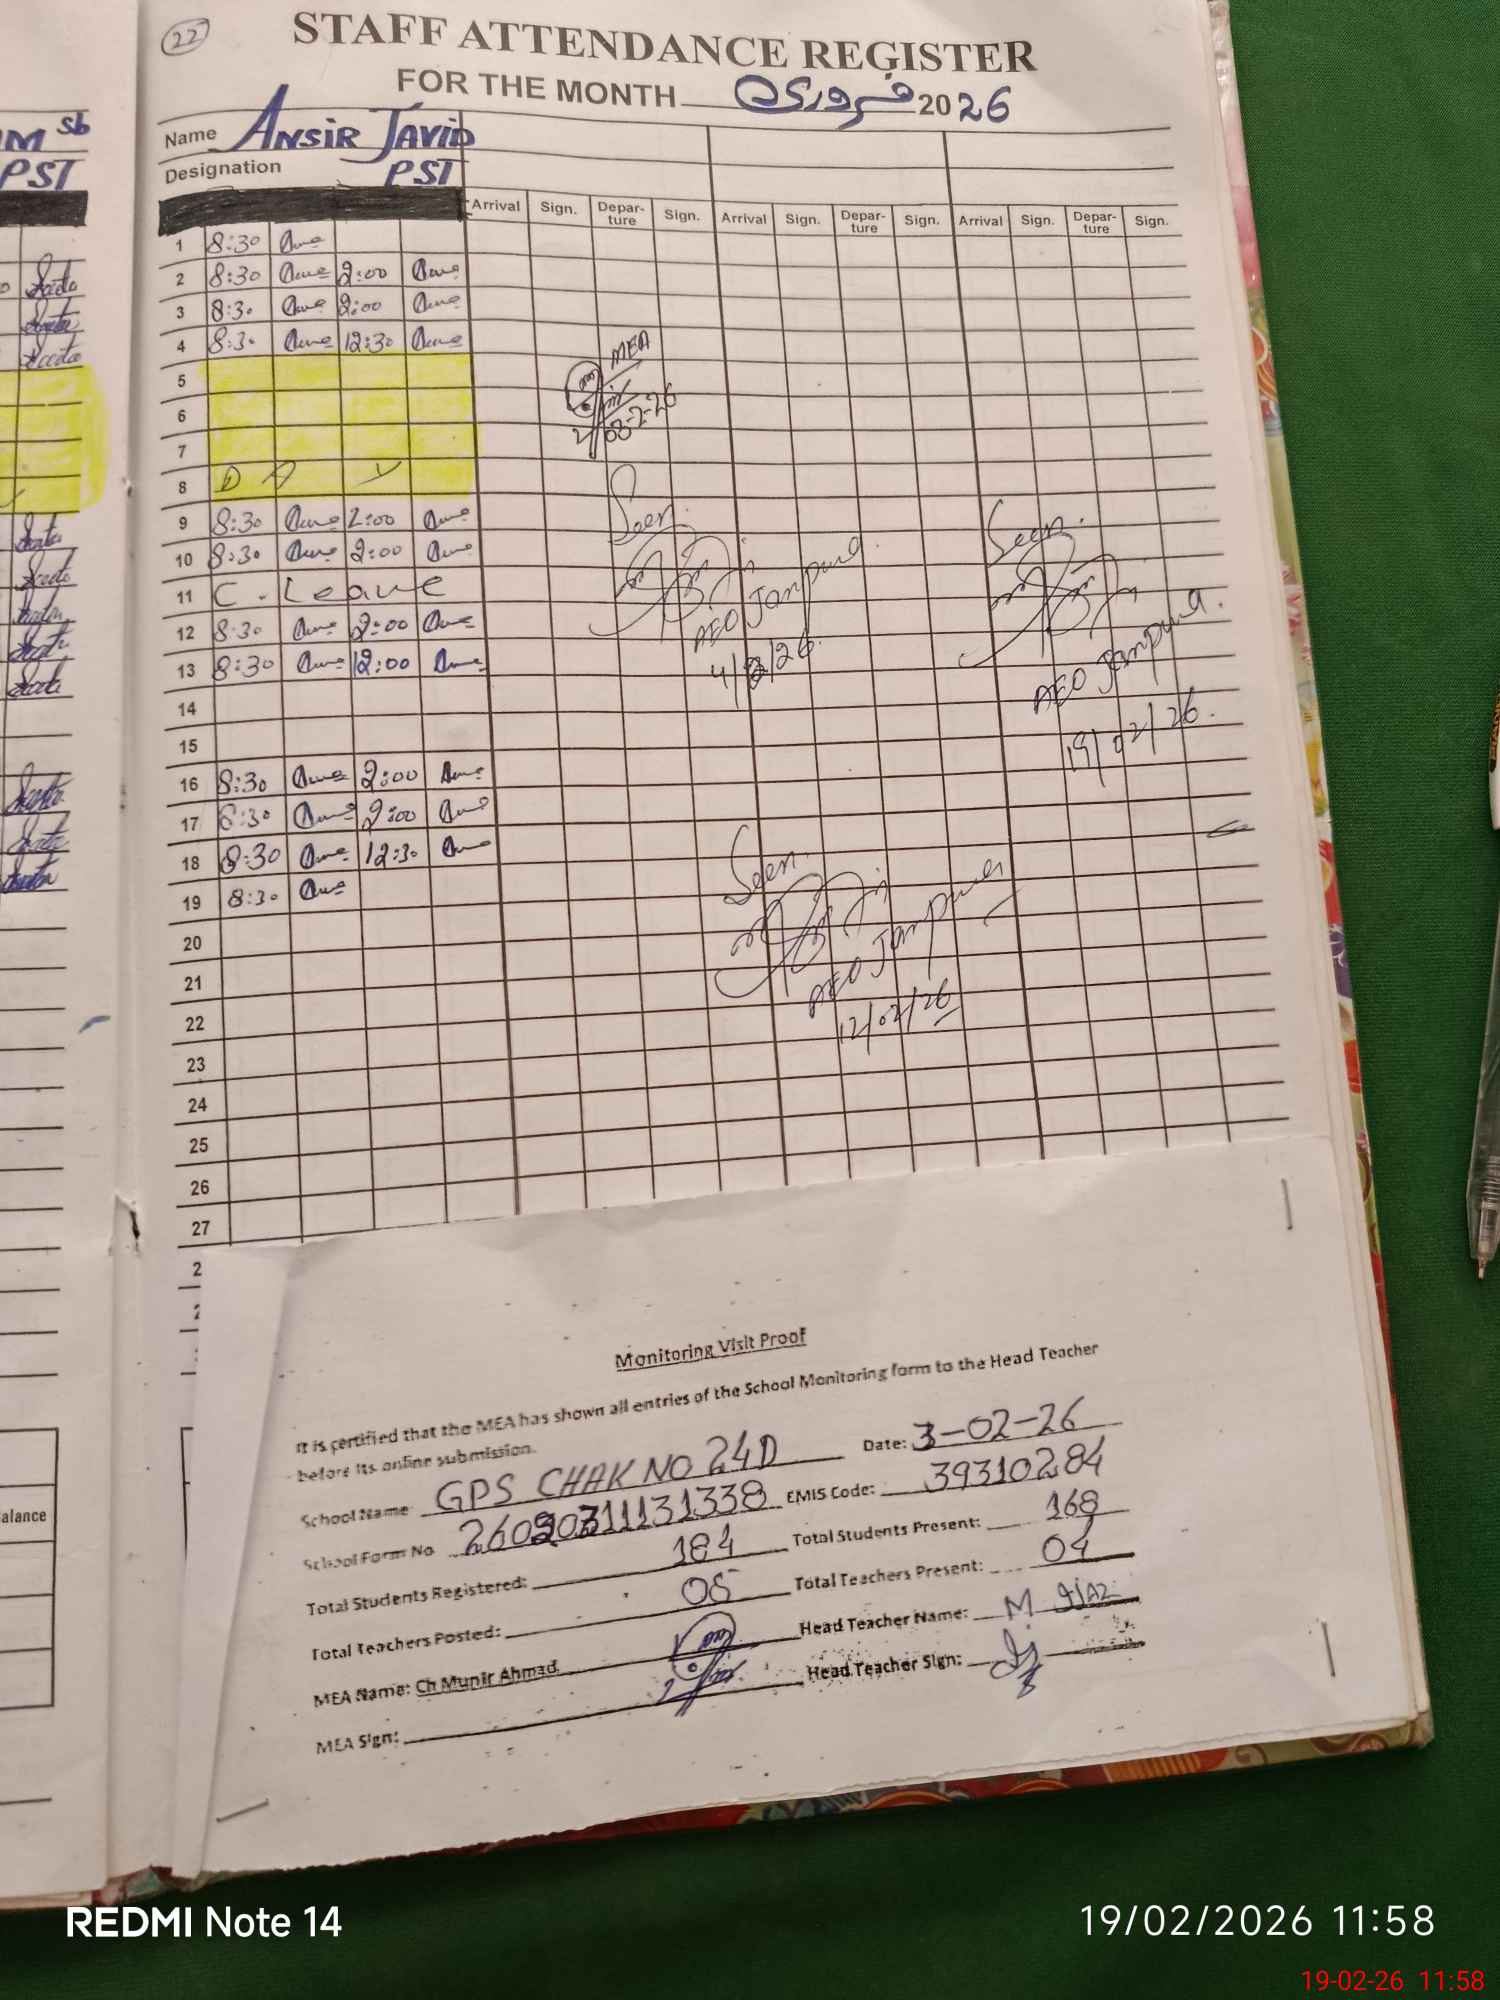 22
STAFF ATTENDANCE REGISTER
FOR THE MONTH فروری 2026
Name ANSIR JAVID
Designation PST
Arrival Sign. Depar-ture Sign. Arrival Sign. Depar-ture Sign. Arrival Sign. Depar-ture Sign.
1 8:30
2 8:30 2:00
3 8:30 2:00
4 8:30 12:30
5
6
7
8 D A Y
9 8:30 2:00
10 8:30 2:00
11 C. Leave
12 8:30 2:00
13 8:30 12:00
14
15
16 8:30 2:00
17 8:30 2:00
18 8:30 12:30
19 8:30
20
21
22
23
24
25
26
27
2
MEA
03-2-26
Seen.
AEO Jampur
4/2/26.
Seen.
AEO Jampur.
19/02/26.
Seen.
AEO Jampur
12/02/26
sb
M
PST
alance
Monitoring Visit Proof
It is certified that the MEA has shown all entries of the School Monitoring form to the Head Teacher
before its online submission.
School Name GPS CHAK NO 24D Date: 3-02-26
School Form No EMIS Code: 39310284
Total Students Registered: 184 Total Students Present: 168
Total Teachers Posted: 05 Total Teachers Present: 04
MEA Name: Ch Munir Ahmad Head Teacher Name: M IJAZ
MEA Sign: Head Teacher Sign:
REDMI Note 14
19/02/2026 11:58
19-02-26 11:58